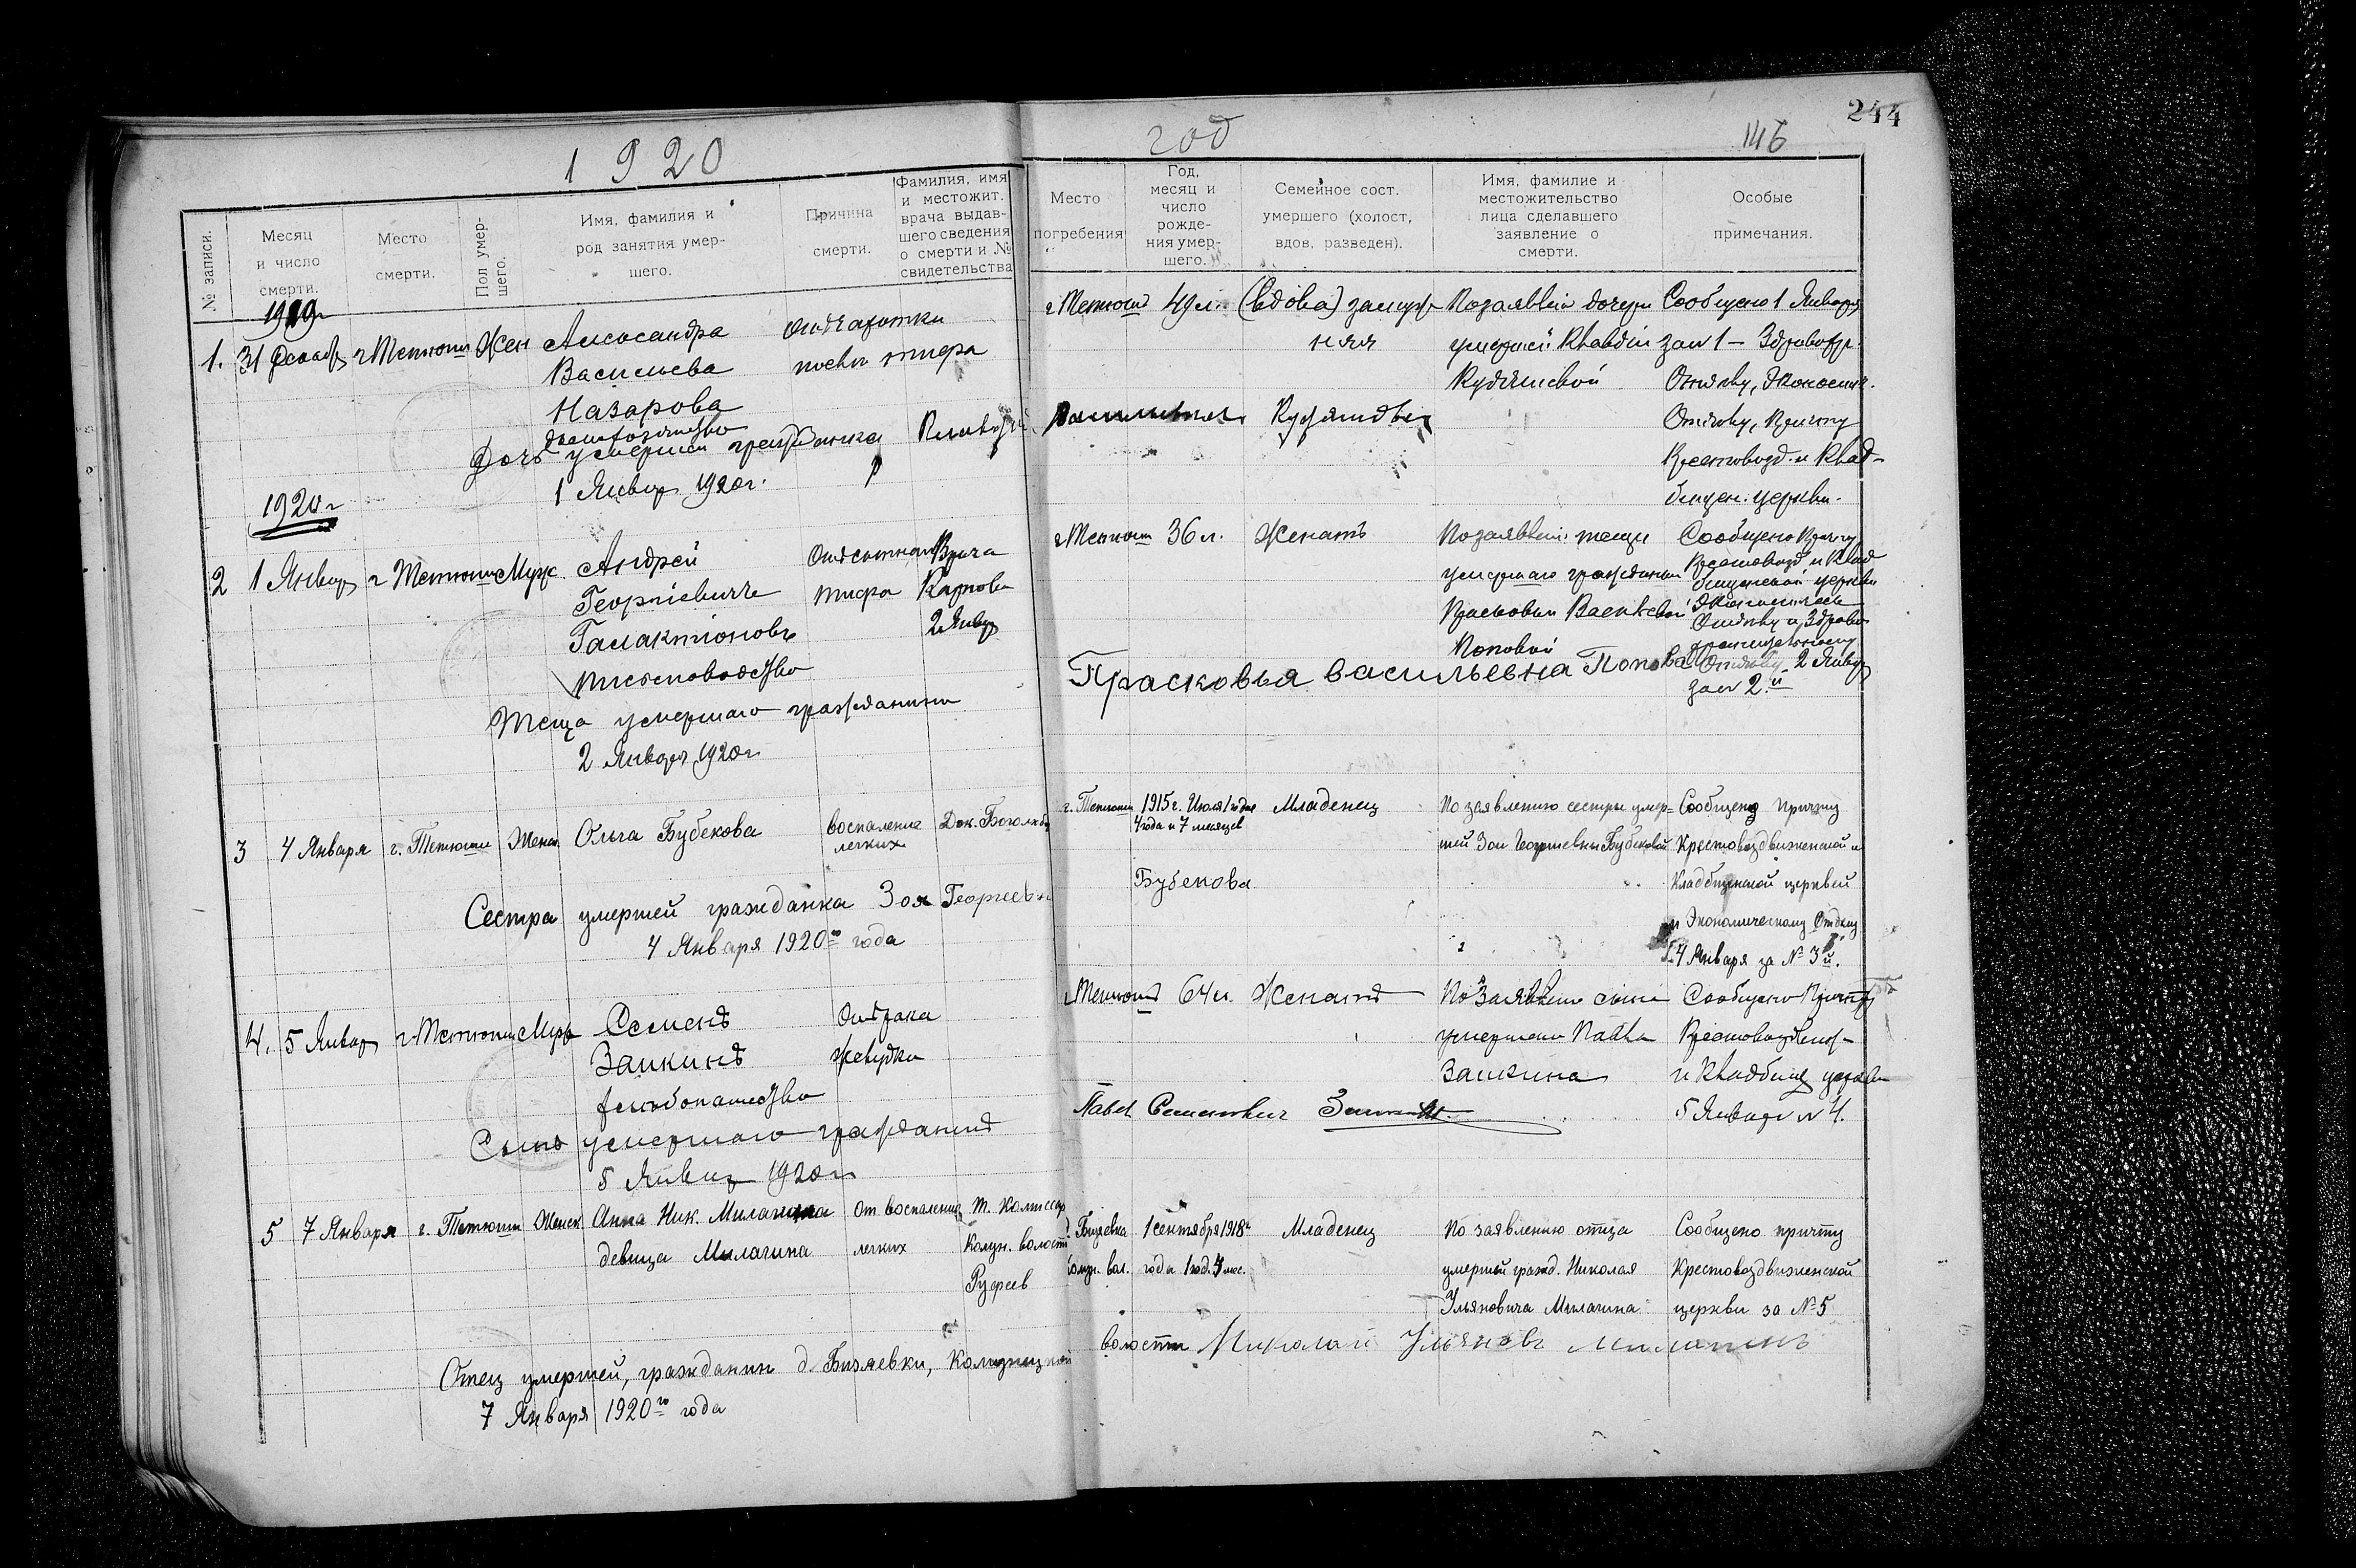 1920
год
146
244
№ записи.
Месяц
и число
смерти.
Место
смерти.
Пол умер-
шего.
Имя, фамилия и
род занятия умер-
шего.
Причина
смерти.
Фамилия, имя
и местожит.
врача выдав-
шего сведения
о смерти и №
свидетельства
Место
погребения
Год,
месяц и
число
рожде-
ния умер-
шего.
Семейное сост.
умершего (холост,
вдов, разведен).
Имя, фамилие и
местожительство
лица сделавшего
заявление о
смерти.
Особые
примечания.
1919г
1.
31 Декабр
г Тетюши
Жен
Александра
Васильева
Назарова
тифа
г Тетюши
49 л.
(вдова) замуж
няя
По заявлен дочери
умершей Клавдии
Кудряшевой
Сообщено 1 Января
за № 1 – Здравохр.
Отделу, Экономич.
Отделу, Причту
Крестовозд. и Клад-
бищен. церкви.
Дочь умершей гражданка Клавдия
Кудряшова
1 Январ 1920г.
1920г
2
1 Январ
г Тетюши
Муж.
Андрей
Георгіевичъ
Галактіоновъ
письмоводство
От сыпного
тифа
Врача
Карпова
2 Январ
г Тетюши
36 л.
Женатъ
По заявлен. тещи
умершаго гражданки
Прасковьи Васильевой
Поповой
Сообщено Причту
Крестовозд и Клад
бищенской церкви
Экономическ
Отделу и Здраво
охранительному
Отделу 2 Январ
за № 2й
Теща умершаго гражданина
Прасковья васильевна Попова
2 Января 1920г
3
4 Января
г. Тетюши
Женс.
Ольга Бубекова
воспаление
легких
Док. Боголюбов
г. Тетюши
1915 г. Июля 1 года
4 года и 7 месяцев
Младенец
По заявлению сестры умер-
шей Зои Георгиевны Бубековой
Сообщено причту
Крестовоздвиженской и
Кладбищенской церквей
и Экономическому Отделу
4 Января за № 3й.
Сестра умершей гражданка Зоя Георгиевна
Бубекова
4 Января 1920го года
4.
5 Январ
г. Тетюши
Муж
Семенъ
Заикинъ
хлебопашество
От рака
желудка
г Тетюши
64 л.
Женатъ
По заявлению сына
умершаго Павла
Заикина
Сообщено Причту
Крестовоздвиж-
и Кладбищ церкви
5 Января № 4.
Сынъ умершаго гражданинъ
Павел Семенович Заикин
5 Январ 1920г
5
7 Января
г. Тетюши
Женск
Анна Ник. Милагина
девица Милагина
От воспаления
легких
т. Комиссар
Колун. волости
Руфеев
д. Бизяевка
Колун. вол.
1 сентября 1918г
года 1 год. 4 мес.
Младенец
По заявлению отца
умершей гражд. Николая
Ульяновича Милагина
Сообщено причту
Крестовоздвиженской
церкви за № 5
Отец умершей, гражданин д. Бизяевки, Колунецкой
волости Николай Ульяновъ Милагинъ
7 Января 1920го года